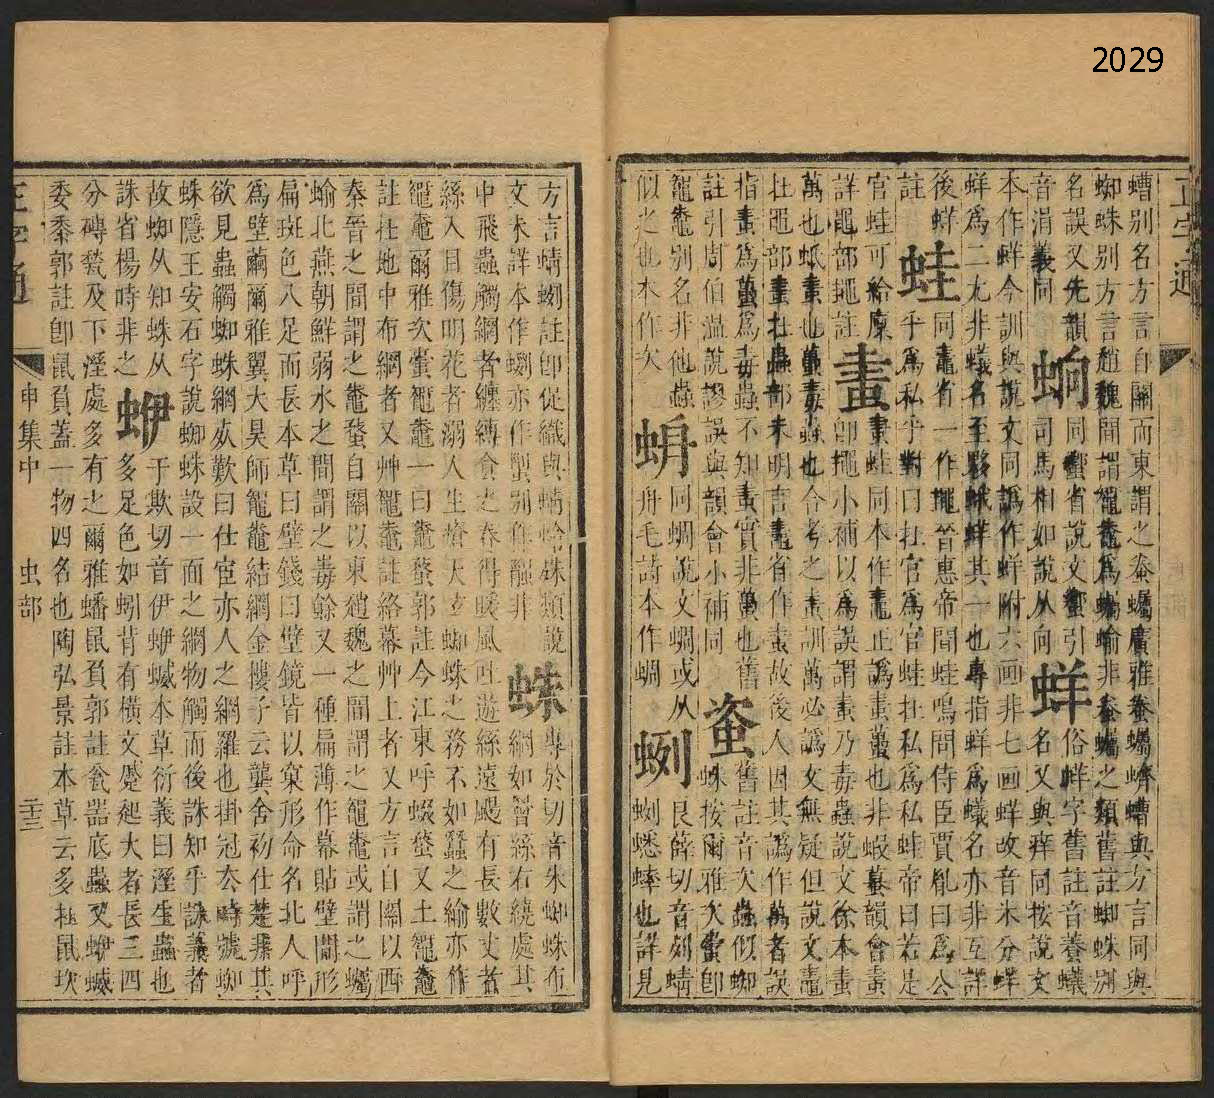 2029
正字通
螬別名方言自關而東謂之蝤蠀廣雅蝤蠐螬與方言同與
蜘蛛別方言趙魏間謂鼅鼄爲蠾蝓非之類舊註蜘蛛別
名誤又先韻
蚼
同蠁省說文蠁引
蛘
俗蛘字舊註音養蟻
音涓義同
司馬相如說从向
名又與痒同按說文
本作蛘今訓與說文同譌作蛘附六画非七画蛘改音米分蛘
蛘爲二尤非蟻名至夥蛾蛘其一也專指蛘爲蟻名亦非互詳
後蛘
蛙
同鼃省一作䵷晉惠帝聞蛙鳴問侍臣賈胤曰爲公
註
乎爲私乎對曰在官爲官蛙在私爲私蛙帝曰若是
官蛙可給廩
畫蛙同本作鼃正譌也非蝦蟇韻會
詳黽部䵷註
卽䵷小補以爲誤謂乃毒蟲說文徐本
萬也蚔也毒蟲也合考之訓萬必譌文無疑但說文鼃
在黽部在蟲部未明言鼃省作故後人因其譌作萬者誤
指爲萬爲毒蟲不知實非萬也舊
蛮
舊註音次蟲似蜘
註引周伯溫說謬誤與韻會小補同
蛛按爾雅次蟗卽
鼅鼄別名非他蟲
蚦
同蜩說文蜩或从
蛚
艮薛切音列蜻
似之也本作次
舟毛詩本作蜩
蛚蟋蟀也詳見
方言蜻蛚註卽促織與蜻蛉殊類說
蛛
專於切音朱蜘蛛布
文未詳本作蛚亦作別作非
網如罾絲右繞處其
中飛蟲觸網者纏縛食之春得暖風吐遊絲遠颺有長數丈者
絲入目傷明花者溺人生瘡天蜘蛛之務不如蠶之緰亦作
鼅鼄爾雅次蟗鼅鼄一曰鼄蝥郭註今江東呼蝃蝥又土鼅鼄
註在地中布網者又艸鼅鼄註絡幕艸上者又方言自關以西
秦晉之間謂之鼄蝥自關以東趙魏之間謂之鼅鼄或謂之蠾
蝓北燕朝鮮弱水之間謂之毒餘又一種扁薄作幕貼壁間形
扁斑色八足而長本草曰壁錢曰壁鏡皆以窠形命名北人呼
爲壁繭爾雅翼大昊師鼅鼄結網金樓子云龔舍初仕楚非其
欲見蟲觸蜘蛛網歎曰仕宦亦人之網羅也掛冠去時號蜘
蛛隱王安石字說蜘蛛設一面之網物觸而後誅知乎誅義者
故蜘从知蛛从
蛜
于欺切音伊蛜蝛本草衍義曰溼生蟲也
誅省楊時非之
多足色如蚓背有橫文蹙起大者長三四
分磚甃及下溼處多有之爾雅蟠鼠負郭註瓮器底蟲又蛜蝛
委黍郭註卽鼠負蓋一物四名也陶弘景註本草云多在鼠坎
正字通
申集中
虫部
二十三